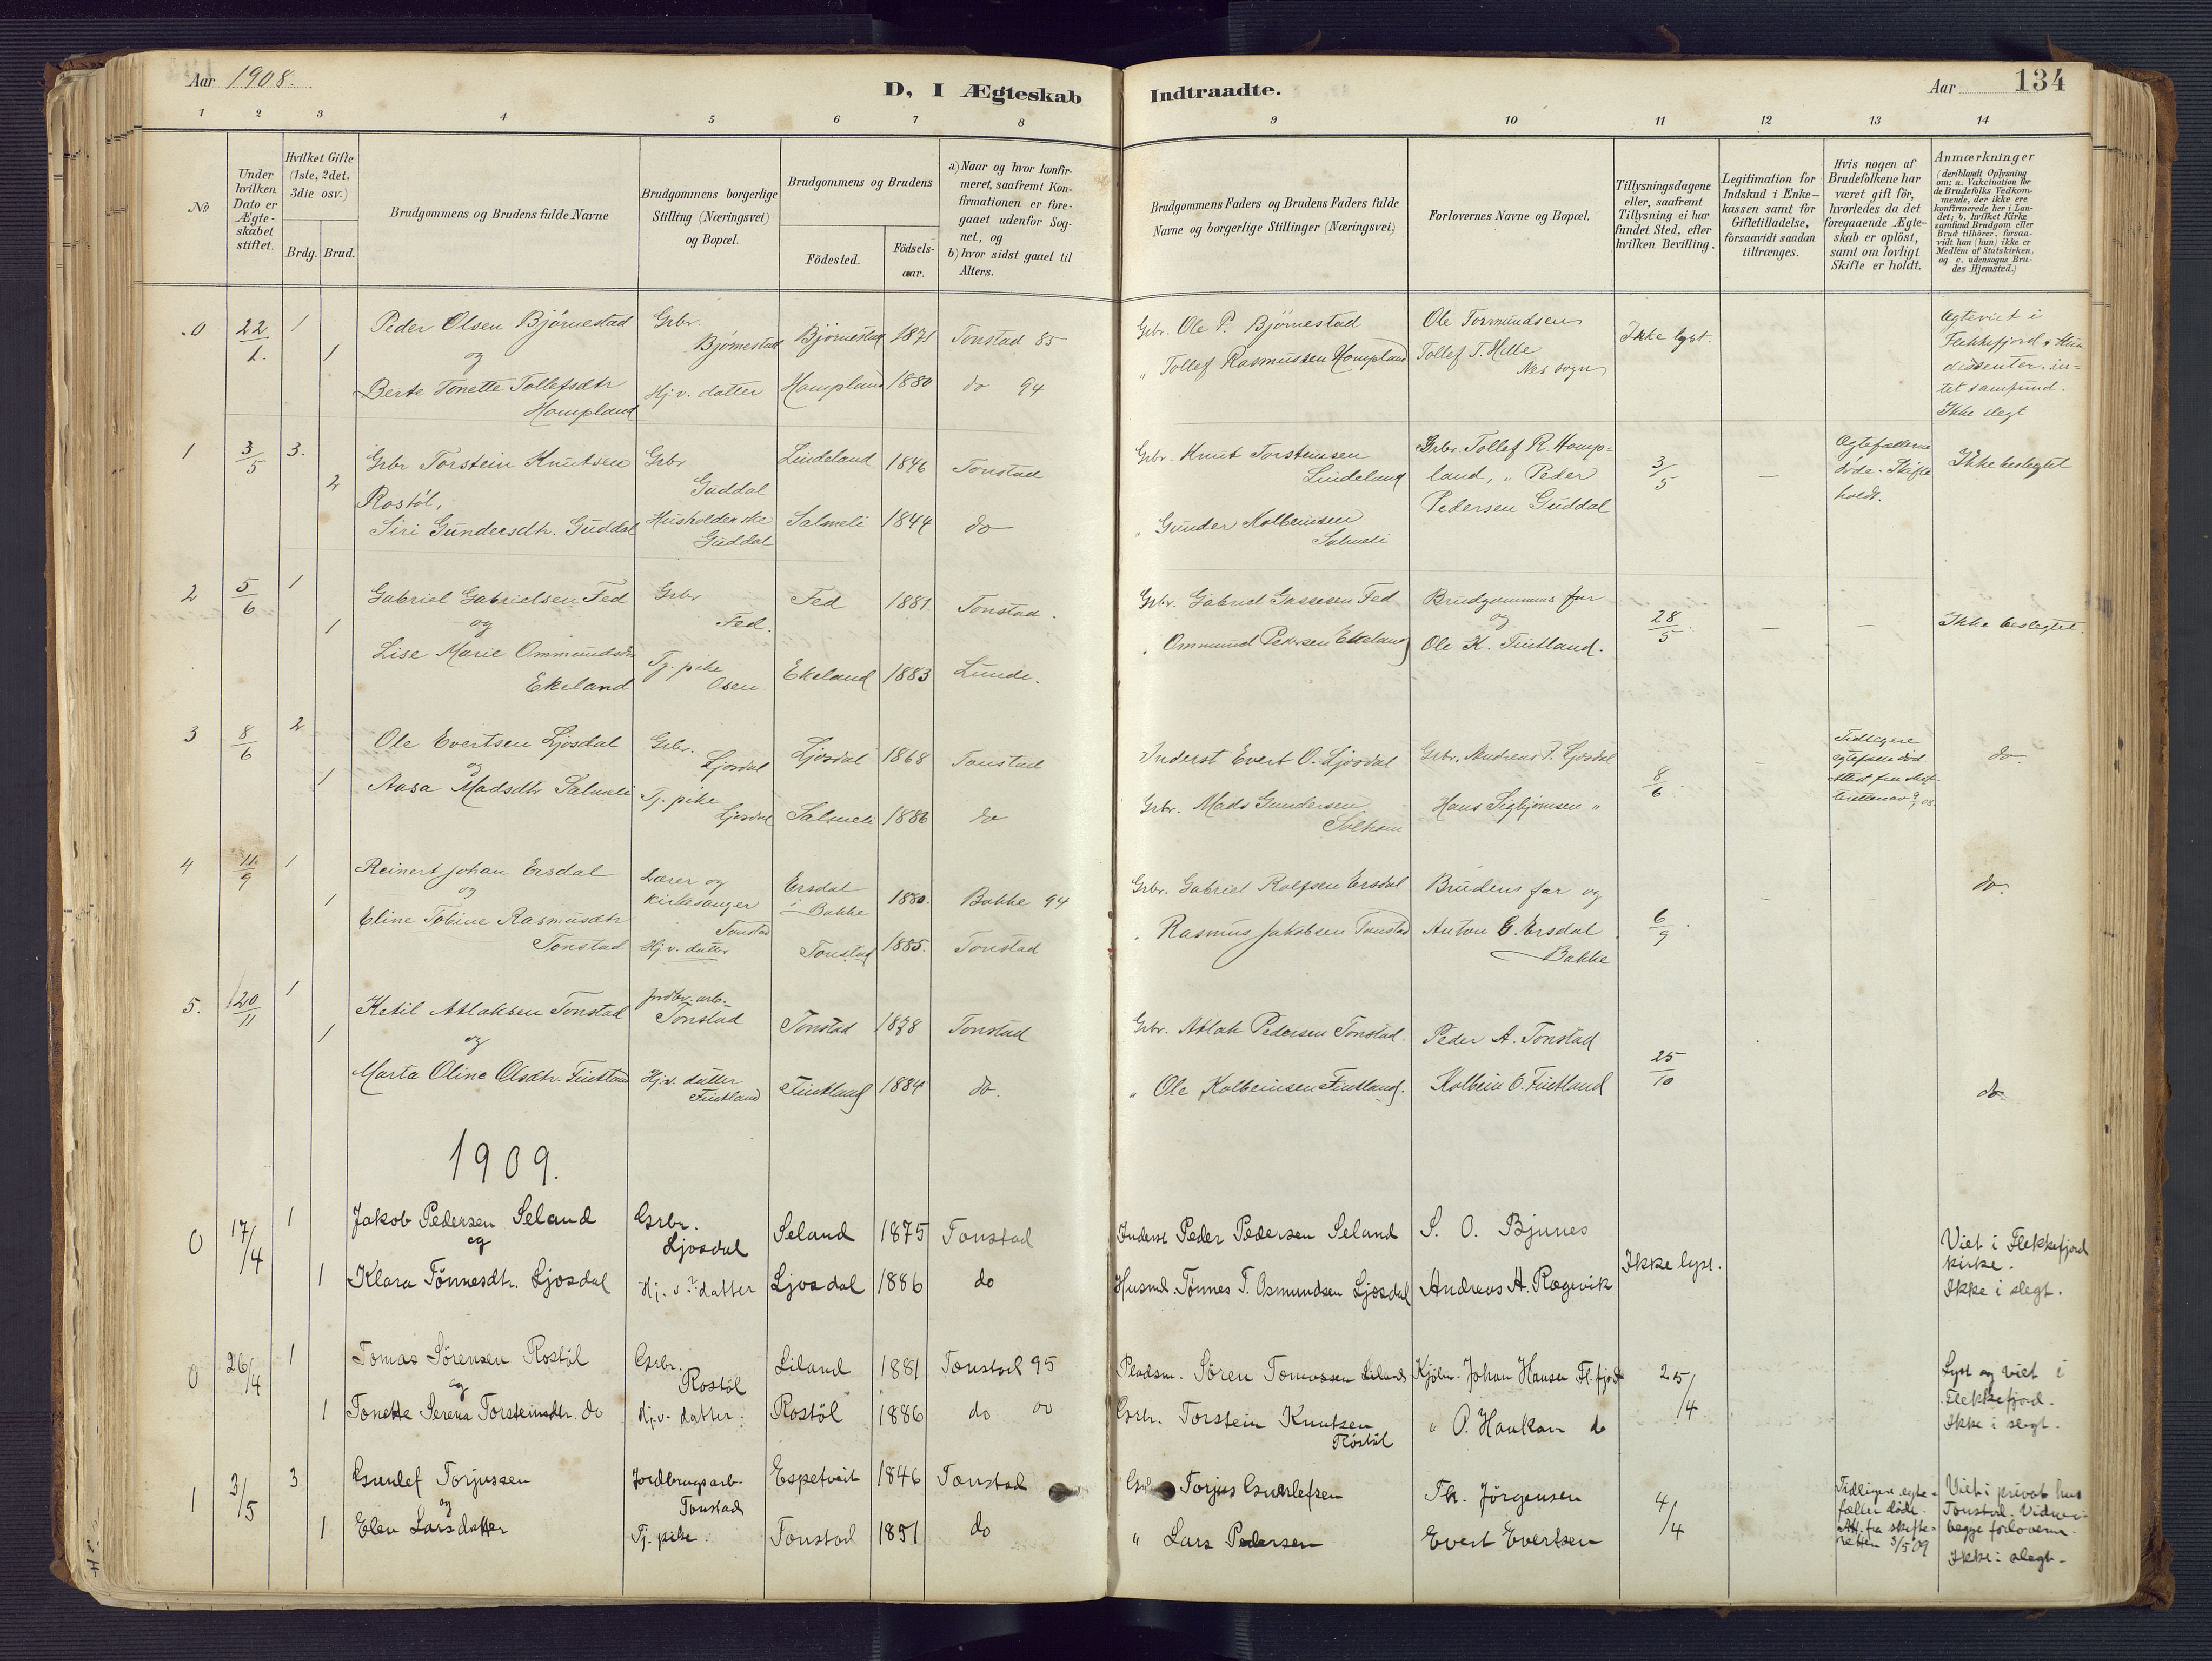 Aar 1908.
D, I Ægteskab Indtraadte.
Aar
134
1 2 3 4 5 6 7 8 9 10 11 12 13 14
No
Under hvilken Dato er Ægteskabet stiftet.
Hvilket Gifte (1ste, 2det, 3die osv.)
Brdg. Brud.
Brudgommens og Brudens fulde Navne
Brudgommens borgerlige Stilling (Næringsvei) og Bopæl.
Brudgommens og Brudens
Födested.
Födselsaar.
a) Naar og hvor konfirmeret, saafremt Konfirmationen er foregaaet udenfor Sognet, og
b) hvor sidst gaaet til Alters.
Brudgommens Faders og Brudens Faders fulde Navne og borgerlige Stillinger (Næringsvei)
Forlovernes Navne og Bopæl.
Tillysningsdagene eller, saafremt Tillysning ei har fundet Sted, efter hvilken Bevilling.
Legitimation for Indskud i Enkekassen samt for Giftetilladelse, forsaavidt saadan tiltrænges.
Hvis nogen af Brudefolkene har været gift för, hvorledes da det foregaaende Ægteskab er oplöst, samt om lovligt Skifte er holdt.
Anmærkninger (deriblandt Oplysning om: a. Vakcination for de Brudefolks Vedkommende, der ikke ere konfirmerede her i Landet; b. hvilket Kirkesamfund Brudgom eller Brud tilhörer, forsaavidt han (hun) ikke er Medlem af Statskirken, og c. udensogns Brudes Hjemsted.)
0 22/1 1 Peder Olsen Bjørnestad Grbr. Bjørnestad Bjørnestad 1871 Tonstad 85 Grbr. Ole P. Bjørnestad Ole Tormundsen Ikke lyst.
1 og
Berte Tonette Tollefsdtr Hompland Hj. v. datter Hompland 1880 do 94 " Tollef Rasmussen Hompland Tollef T. Helle Nes sogn
Flekkefjord
dissenter. intet samfund.
Ikke slegt
1 3/5 3. Grbr Torstein Knutsen Rostöl, Grbr Guddal Lindeland 1846 Tonstad Grbr. Knut Torsteinsen Lindeland Grbr. Tollef R. Hompland, " Peder Pedersen Guddal 3/5 — Ægtefællerne døde. Skifte holdt. Ikke beslegtet
2 Siri Gundersdtr. Guddal Husholderske Guddal Salmeli 1844 do " Gunder Kolbeinsen Salmeli
2 5/6 1 Gabriel Gabrielsen Fed Grbr Fed. Fed 1881. Tonstad. Grbr. Gabriel Gassesen Fed Brudgommens far 28/5 — — Ikke beslegtet.
1 og og
Lise Marie Ommundsdtr Ekeland Tj. pike Osen Ekeland 1883 Lunde. " Ommund Pedersen Ekeland Ole K. Fintland.
3 8/6 2 Ole Evertsen Ljosdal Grbr. Ljosdal Ljosdal 1868 Tonstad Inderst Evert O. Ljosdal Grbr. Andreas T. Ljosdal 8/6 — Tidligere egtefælle død do
1 og
Aasa Madsdtr Salmeli Tj. pike Ljosdal Salmeli 1886 do Grbr. Mads Gundersen Solheim Hans Sigbjørnsen "
4 11/9 1 Reinert Johan Ersdal Lærer og kirkesanger Tonstad Ersdal i Bakke 1880. Bakke 94 Grbr. Gabriel Rolfsen Ersdal Brudens far og 6/9 do.
1 og
Eline Tobine Rasmusdtr Tonstad Hj. v. datter Tonstad 1885. Tonstad " Rasmus Jakobsen Tonstad Anton G. Ersdal Bakke
5. 20/11 1 Ketil Atlaksen Tonstad jordbr. arb. Tonstad Tonstad 1878 Tonstad Grbr. Atlak Pedersen Tonstad. Peder A. Tonstad 25/10
1 og
Marta Oline Olsdtr. Fintland Hj. v. datter Fintland Fintland 1884 do. " Ole Kolbeinsen Fintland. Kolbein O. Fintland do
1909.
0 17/4 1 Jakob Pedersen Seland Grbr. Ljosdal Seland 1875 Tonstad Inderst Peder Pedersen Seland S. O. Bjunes Ikke lyst. Viet i Flekkefjord kirke.
og
1 Klara Tönnesdtr. Ljosdal Hj. v. datter Ljosdal 1886 do Husmd. Tönnes T. Osmundsen Ljosdal Andreas A. Rægevik Ikke i slegt.
0 26/4 1 Tomas Sörensen Rostöl Grbr. Rostöl Liland 1881 Tonstad 95 Pladsm. Sören Tomassen Liland Kjöbm. Johan Hansen Fl. fjord 25/4 Lyst og viet i Flekkefjord.
og
1 Tonette Serena Torsteinsdtr. do Hj. v. datter: Rostöl 1886 do 00 Grbr. Torstein Knutsen Röstöl " O. Haukan do Ikke i slegt.
1 3/5 3 Gunlef Torjussen Jordbrugsarb. Tonstad Espetveit 1846 Tonstad Torjus Gunlefsen Th. Jörgensen 4/4 Tidligere egtefæller döde. Att. fra skifteretten 3/5 09 Viet i privat hus Tonstad.
og
1 Elen Larsdatter Tj. pike. Tonstad 1851 do " Lars Pedersen Evert Evertsen begge forloverne. Ikke i slegt.